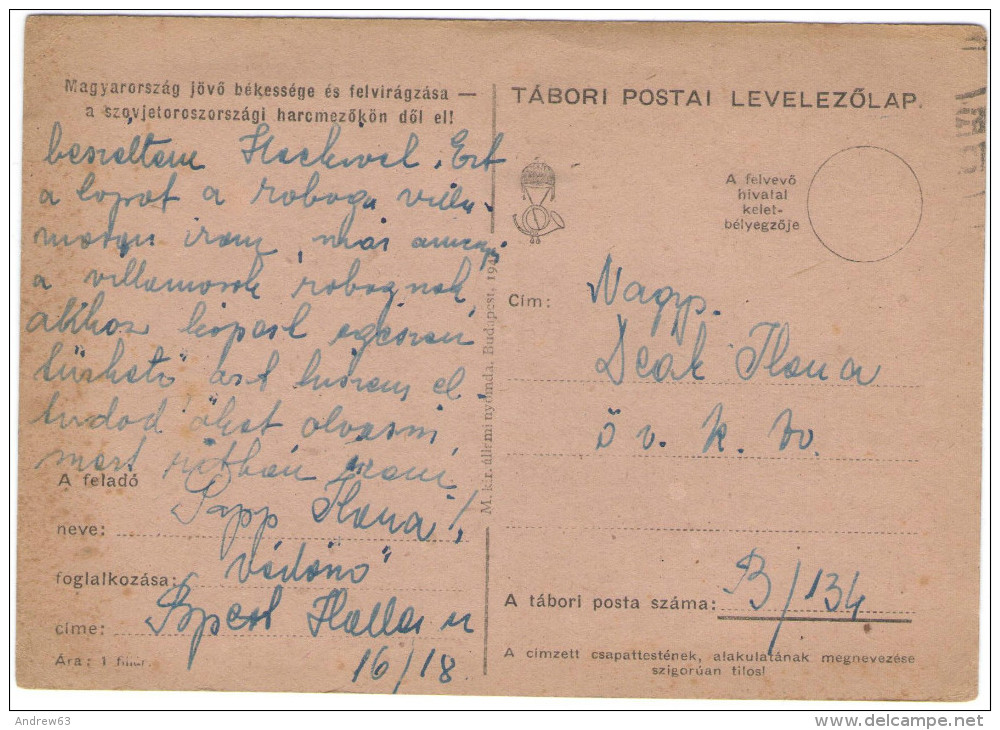 Magyarország jövő békessége és felvirágzása —
a szovjetoroszországi harcmezőkön dől el!
beszéltem Ezt
a lapot a robogó villa-
moson irom, már amennyi
a villamosok robognak,
ahhoz képest egészen
türhető azt hiszem el
tudod őket olvasni
mert ritkán irni.
A feladó
neve: Papp Ilona!
foglalkozása: Védőnő
címe: Bpest Haller u
16/18
Ára: 1 fillér.
M. kir. állami nyomda, Budapest, 194
TÁBORI POSTAI LEVELEZŐLAP.
A felvevő
hivatal
kelet-
bélyegzője
Cím: Nagys.
Deák Ilona
ő v. k. tő.
A tábori posta száma: B/134
A címzett csapattestének, alakulatának megnevezése
szigorúan tilos!
Andrew63
www.delcampe.net